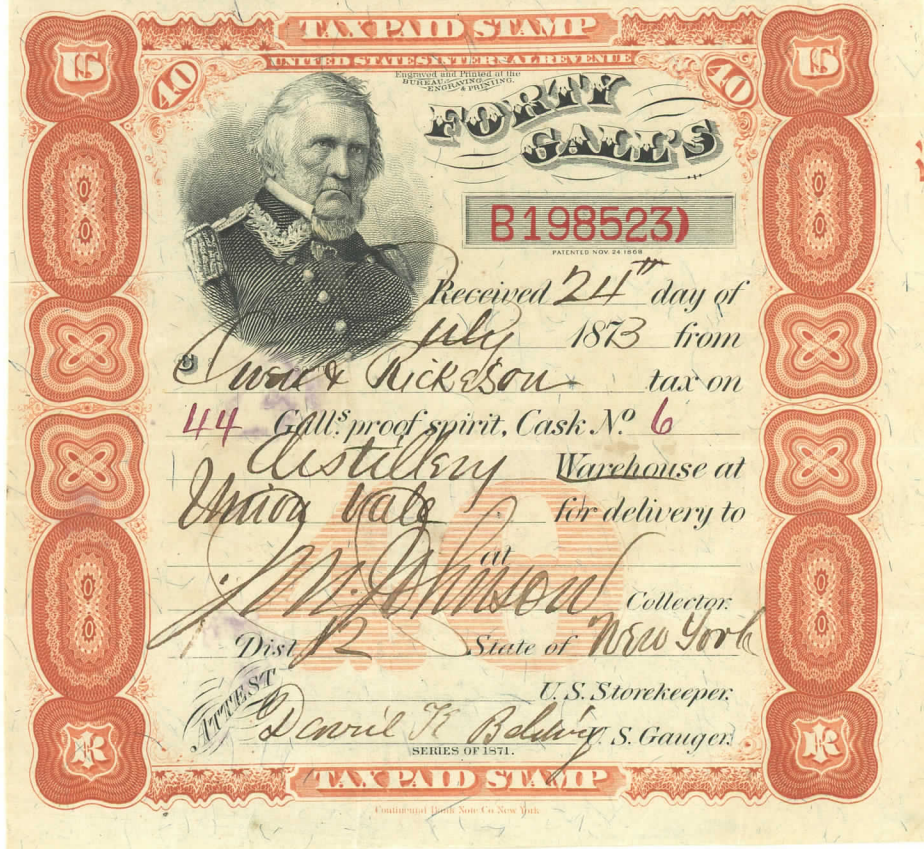 TAX PAID STAMP
UNITED STATES INTERNAL REVENUE
US 40 40 US
Engraved and Printed at the
BUREAU, ENGRAVING & PRINTING.
FORTY
GALL'S
B198523)
PATENTED NOV. 24 1868
Received 24th day of
July 1873 from
& Rickerson tax on
44 Galls. proof spirit, Cask No. 6
distillery Warehouse at
Union Vale for delivery to
40
at
J M. Johnson Collector.
Dist 12 State of New York
ATTEST
U.S. Storekeeper.
K U.S. Gauger.
SERIES OF 1871.
IR IR
TAX PAID STAMP
Continental Bank Note Co New York